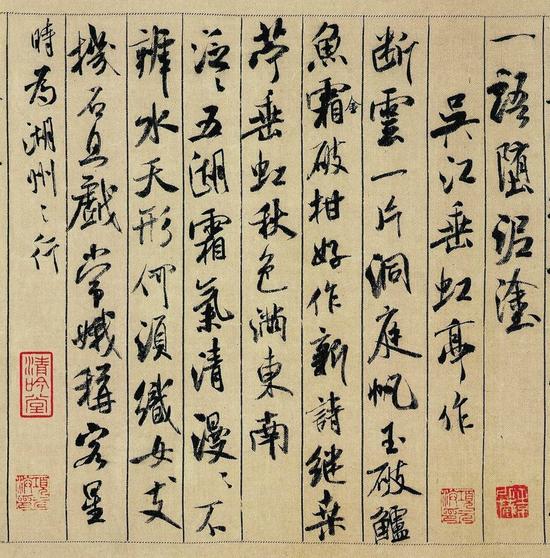 一語墮泥塗
吳江垂虹亭作
断雲一片洞庭帆玉破鱸
魚霜金破柑好作新詩繼桑
苧垂虹秋色滿東南
泛〻五湖霜氣清漫〻不
辨水天形何須織女支
機石且戲常娥稱客星
時為湖州之行
清吟堂